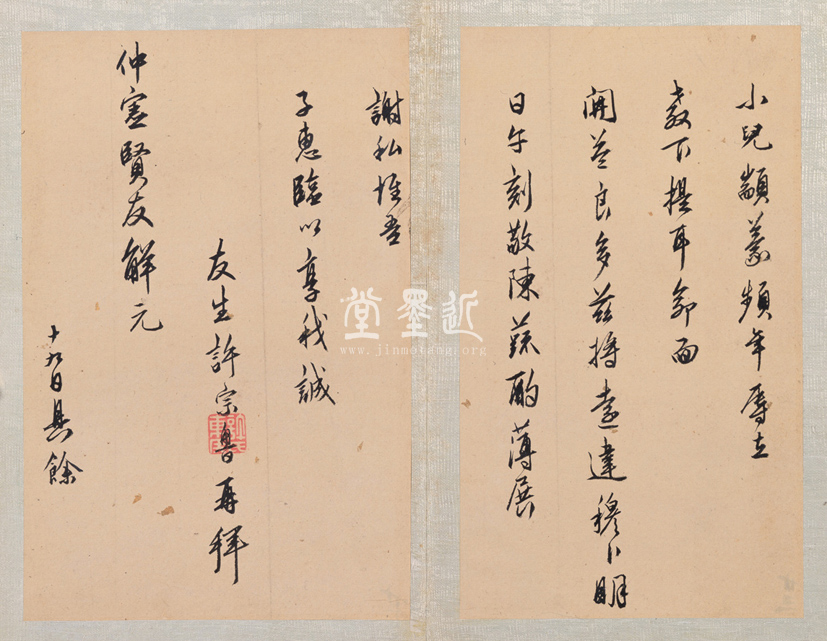 小兒顓蒙頻年辱在
教下提耳命面
開益良多茲將遠違穆卜明
日午刻敬陳蔬酌薄展
謝私惟吾
子惠臨以享我誠
友生許宗魯再拜
仲寰賢友解元
十九日具餘
近墨堂
www.jinmotang.org